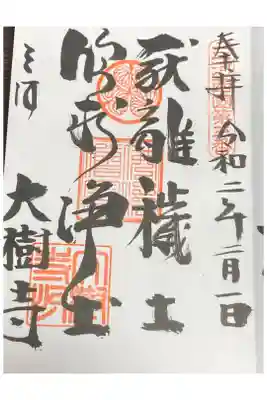 奉拝 令和二年二月一日
厭離穢土
欣求浄土
三河 大樹寺